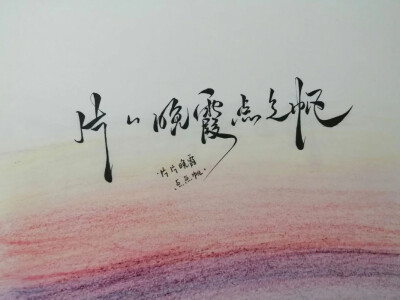 片片晚霞点点帆
片片晚霞
点点帆